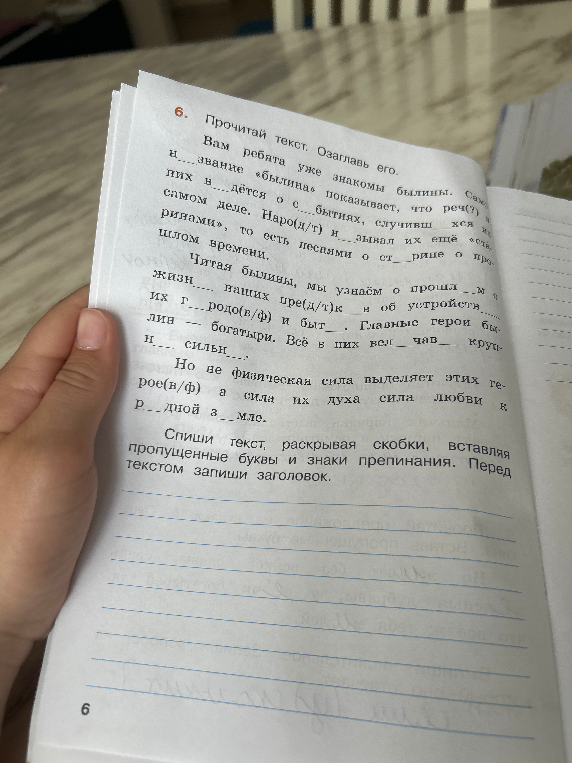 6. Прочитай текст. Озаглавь его.
Вам ребята уже знакомы былины. Само
н__звание «былина» показывает, что реч(?)
них в__дётся о с__бытиях, случивш__хся на
самом деле. Наро(д/т) н__зывал их ещё «ста-
ринами», то есть песнями о ст__рине о про-
шлом времени.
Читая былины, мы узнаём о прошл__м о
жизн__ наших пре(д/т)к__в об устройств__
их г__родо(в/ф) и быт__. Главные герои бы-
лин — богатыри. Всё в них вел__чав__ круп-
н__ сильн__.
Но не физическая сила выделяет этих ге-
рое(в/ф) а сила их духа сила любви к
р__дной з__мле.
Спиши текст, раскрывая скобки, вставляя
пропущенные буквы и знаки препинания. Перед
текстом запиши заголовок.
6